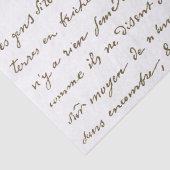 es gens
terres en friche
n'y a rien dem
comme ils ne Disent
d'un moyen de n
sans encombre, &